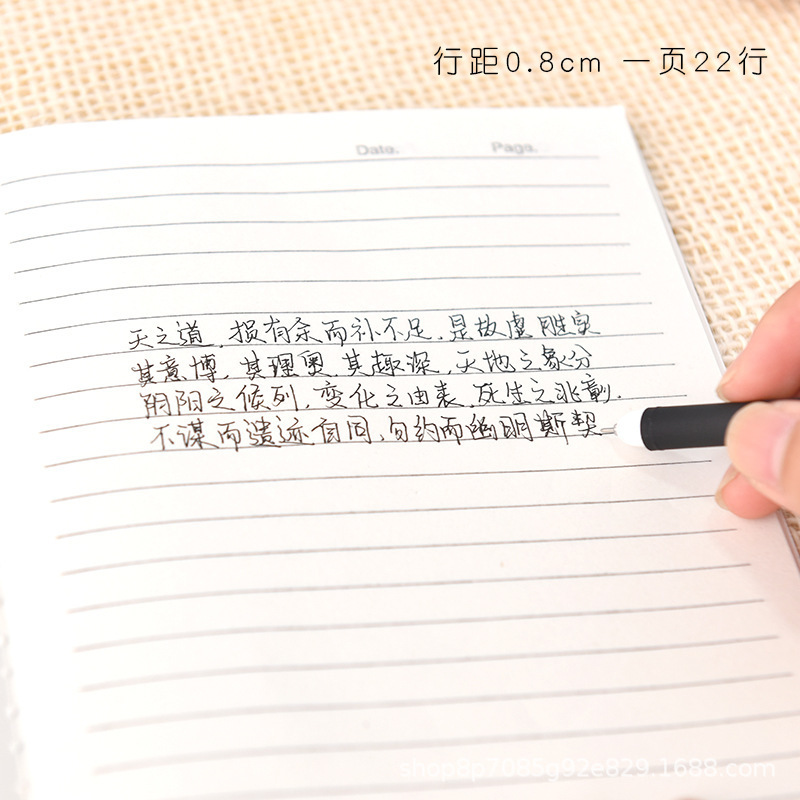 行距0.8cm 一页22行
Date. Page.
天之道,损有余而补不足,是故虚胜实
其意博,其理奥,其趣深,天地之象分
阴阳之候列,变化之由表,死生之兆彰,
不谋而遗迹自同,勿约而幽明斯契
shop8p7085g92e829.1688.com